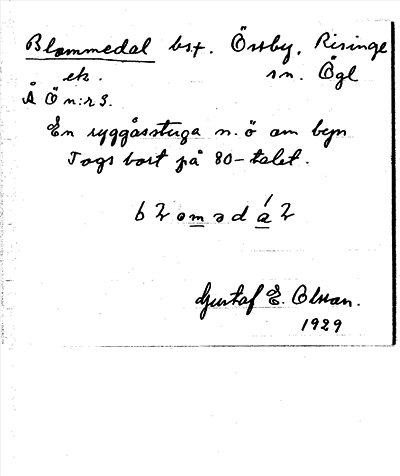 Blommedal bst. Östby, Risinge
ek. sn. Ögl
Å Ö n:r 3.
En ryggåsstuga n.ö om byn
Togs bort på 80-talet.
Gustaf E. Olsson.
1929